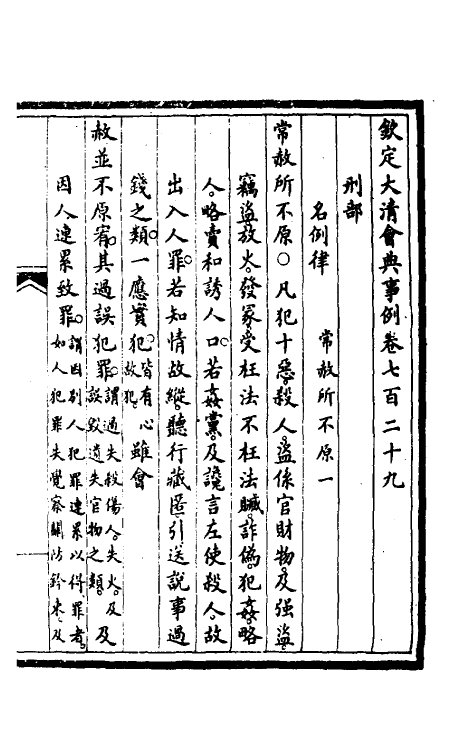 欽定大清會典事例卷七百二十九
刑部
名例律 常赦所不原一
常赦所不原○凡犯十惡殺人盜係官財物及强盜
竊盜放火發冢受枉法不枉法贓詐偽犯姦略
人略賣和誘人口若姦黨及讒言左使殺人故
出入人罪若知情故縱聽行藏匿引送說事過
錢之類一應實犯皆有心故犯雖會
赦並不原宥其過誤犯罪謂過失殺傷人失火及誤毀遺失官物之類及
因人連累致罪謂因別人犯罪連累以得罪者如人犯罪失覺察關防鈐束及